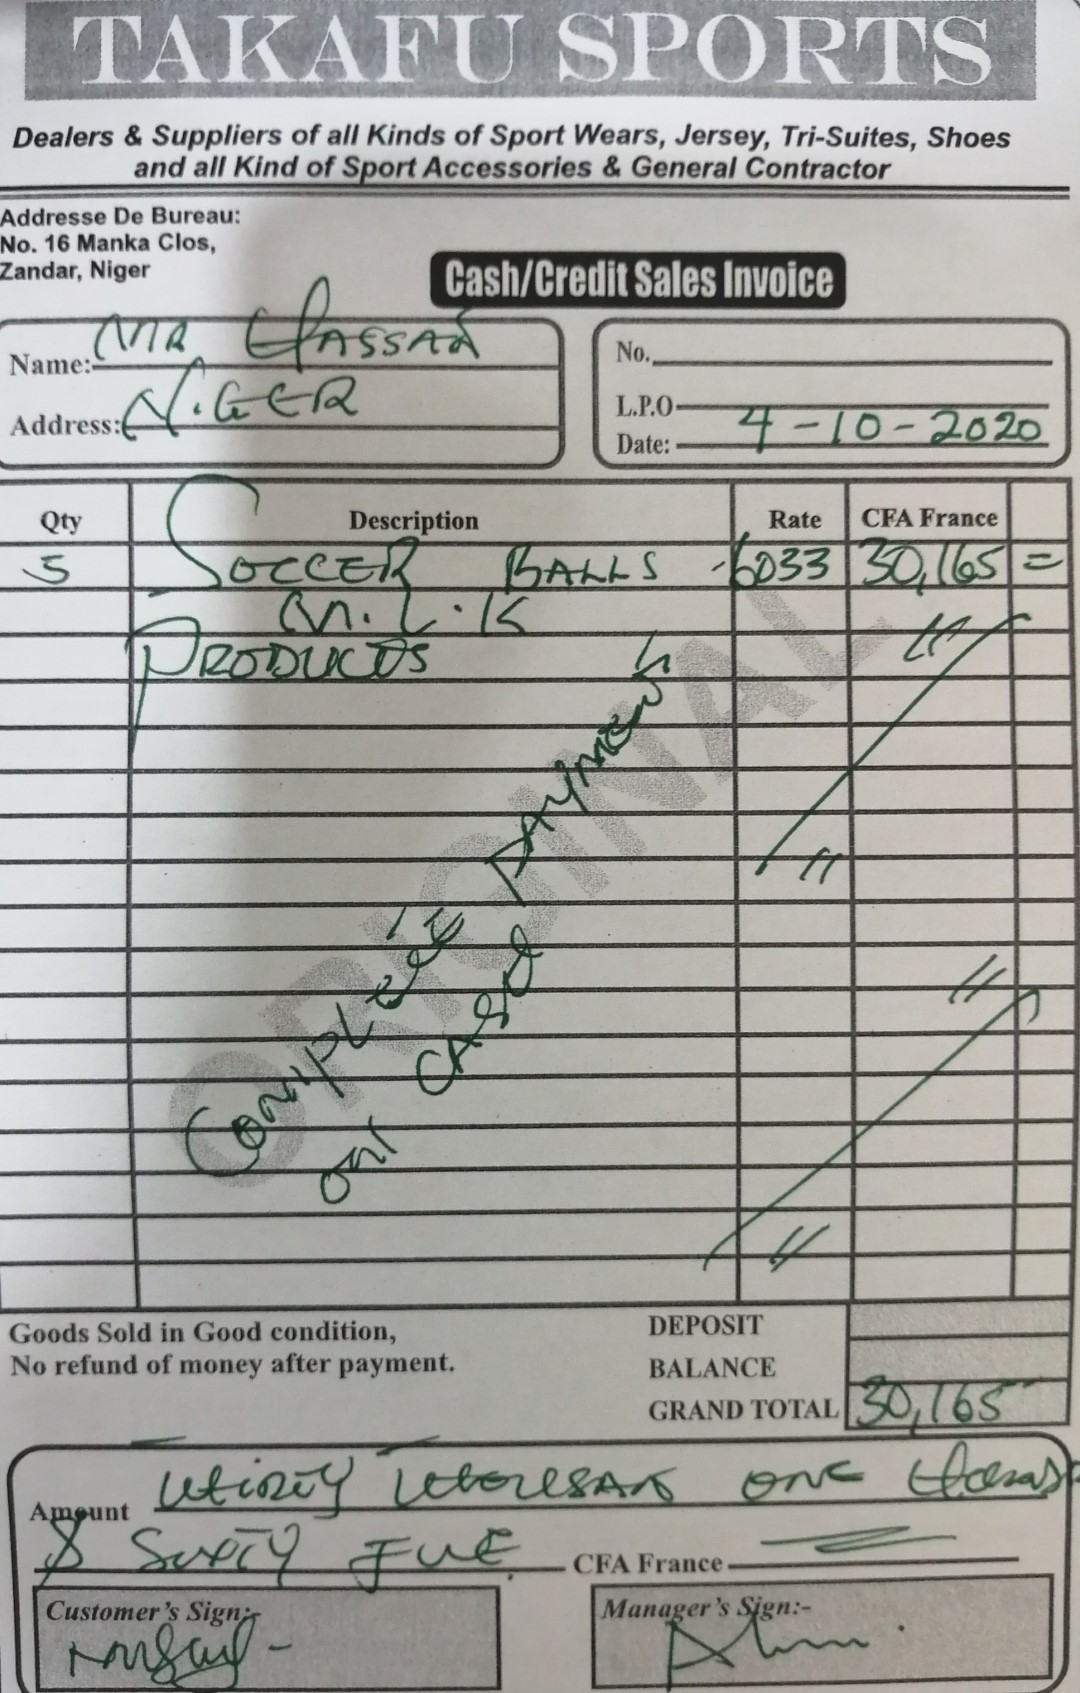 TAKAFU SPORTS
Dealers & Suppliers of all Kinds of Sport Wears, Jersey, Tri-Suites, Shoes
and all Kind of Sport Accessories & General Contractor
Addresse De Bureau:
No. 16 Manka Clos,
Zandar, Niger
Cash/Credit Sales Invoice
Name: MR HASSAN
Address: NIGER
No.
L.P.O
Date: 4-10-2020
Qty Description Rate CFA France
5 SOCCER BALLS 6033 30,165 =
M.L.K
PRODUCTS
ORIGINAL
Complete payment
on cash
Goods Sold in Good condition,
No refund of money after payment.
DEPOSIT
BALANCE
GRAND TOTAL 30,165
Amount ONE
& CFA France
Customer's Sign:-
Manager's Sign:-